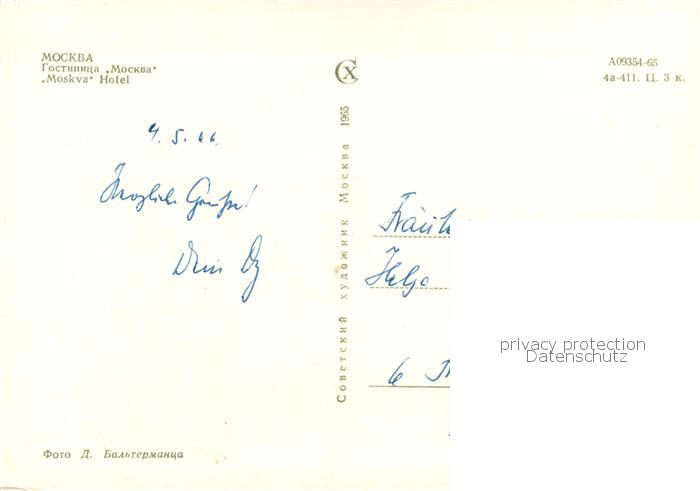 МОСКВА
Гостиница „Москва“
„Moskva“ Hotel
4. 5. 66.
Herzliche Grüße!
Dein
Советский художник Москва 1965
СХ
А09354-65
4а-411. Ц. 3 к.
Fräul
Helge
6
privacy protection
Datenschutz
Фото Д. Бальтерманца